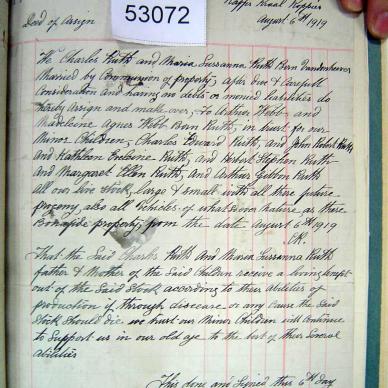 53072
Kraal
August 6th 1919
Deed of Assign
We Charles Ruth and Maria Susanna Ruth Born
Married by Community of property, after due & Carefull
Consideration and having no debts or monied liabilities do
hereby Assign and make over, to Arthur Webb and
Madeleine Agnes Webb Born Ruth, in trust for our
Minor Children; Charles Edward Ruth, and John Robert Ruth,
and Kathleen Ruth, and Herbert Stephen Ruth
and Margaret Ellen Ruth, and Arthur Ruth
all our live stock, large & small with all there future
progeny, also all Vehicles of whatsoever nature, as there
Bonafide property, from the date August 6th 1919
That the Said Charles Ruth and Maria Susanna Ruth
father & Mother of the Said Children receive a living
out of the Said Stock according to their abilities of
production if through disease or any cause the Said
Stock should die we trust our Minor Children will Continue
to Support us in our old age to the best of their Several
abilities
This done and Signed this 6th Day